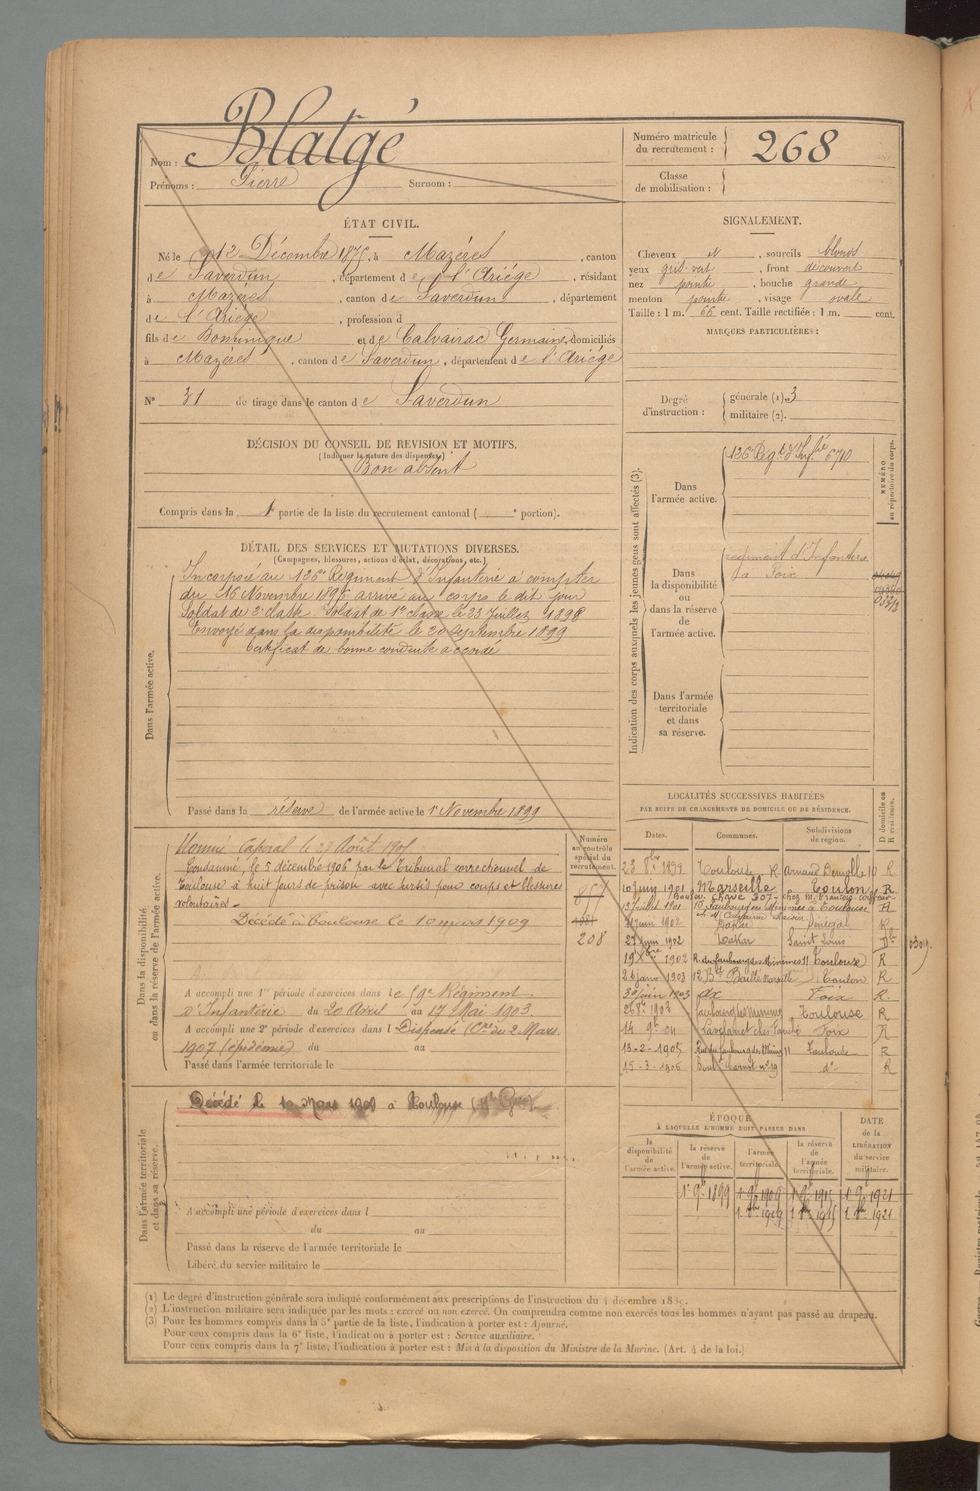 Nom : Blatgé
Prénoms : Pierre Surnom :
Numéro matricule du recrutement : 268
Classe de mobilisation :
ÉTAT CIVIL.
Né le 12 Décembre 187, à Mazères, canton
de Saverdun, département de l'Ariége, résidant
à Mazères, canton de Saverdun, département
de l'Ariège, profession d
fils de Dominique et de Calvairac Germaine, domiciliés
à Mazères, canton de Saverdun, département de l'Ariége
N° 31 de tirage dans le canton de Saverdun
SIGNALEMENT.
Cheveux, sourcils blonds
yeux gris vert, front découvert
nez pointu, bouche grande
menton pointu, visage ovale
Taille : 1 m. 66 cent. Taille rectifiée : 1 m. cent.
MARQUES PARTICULIÈRES :
Degré d'instruction : générale (1) 3
militaire (2).
DÉCISION DU CONSEIL DE REVISION ET MOTIFS.
(Indiquer la nature des dispenses)
Bon absent
Compris dans la 1 partie de la liste du recrutement cantonal ( e portion).
DÉTAIL DES SERVICES ET MUTATIONS DIVERSES.
(Campagnes, blessures, actions d'éclat, décorations, etc.)
Dans l'armée active.
Incorporé au 126e Régiment d'Infanterie à compter
du 16 Novembre 189 arrivé au corps le dit jour
Soldat de 2e classe Soldat de 1re classe le 23 Juillet 1898
Envoyé dans la disponibilité le 20 Septembre 1899
Certificat de bonne conduite accordé
Passé dans la réserve de l'armée active le 1er Novembre 1899
Indication des corps auxquels les jeunes gens sont affectés (3).
NUMÉRO au répertoire du corps.
Dans l'armée active.
126 Regt d'Inftie 6710
Dans la disponibilité ou dans la réserve de l'armée active.
régiment d'Infanterie
à Foix
Dans l'armée territoriale et dans sa réserve.
Dans la disponibilité ou dans la réserve de l'armée active.
Numéro au contrôle spécial du recrutement.
Nommé Caporal le 2 Août 190
Condamné, le 5 décembre 1906 par le Tribunal correctionnel de
Toulouse à huit jours de prison avec sursis pour coups et blessures
volontaires -
Décédé à Toulouse le 10 mars 1909
857
208
A accompli une 1re période d'exercices dans le 59e Régiment
d'Infanterie du 20 Avril au 17 Mai 1903.
A accompli une 2e période d'exercices dans l Dispensé (Cre du 2 Mars
1907 (épidémie) du au
Passé dans l'armée territoriale le
Dans l'armée territoriale et dans sa réserve.
Décédé le 10 Mars 1909 à Toulouse
A accompli une période d'exercices dans l
du au
Passé dans la réserve de l'armée territoriale le
Libéré du service militaire le
LOCALITÉS SUCCESSIVES HABITÉES
PAR SUITE DE CHANGEMENTS DE DOMICILE OU DE RÉSIDENCE.
Dates. Communes. Subdivisions de région. D domicile ou R résidence.
23 8bre 1899 Toulouse R. 10 R
10 juin 1901 Marseille Toulon R
Boulev. Chave 307 - chez M. François coiffeur
Juillet 1901 Faubourg des Minimes à Toulouse R
juin 1902 Dakar Sénégal R
27 juin 1902 Dakar Saint Louis
19 1902 R. du faubourg des Minimes 11 Toulouse R
26 janv. 1903 12 Bd Baille Marseille Toulon R
30 juin 1903 Ax Foix R.
26 1903 faubourg des minimes Toulouse R
14 9bre 04 Lavelanet Foix R
13-2-1905 Rue du faubourg des Minim 11 Toulouse R
15-3-1906 Boult Carnot n° 19 do R
ÉPOQUE
À LAQUELLE L'HOMME DOIT PASSER DANS
DATE de la LIBÉRATION du service militaire.
la disponibilité de l'armée active. la réserve de l'armée active. l'armée territoriale. la réserve de l'armée territoriale.
1er 9bre 1899 1er 9bre 1909 1er 9bre 1915 1er 9bre 1921
1er 1909 1er 1915 1er 1921
(1) Le degré d'instruction générale sera indiqué conformément aux prescriptions de l'instruction du 4 décembre 1889.
(2) L'instruction militaire sera indiquée par les mots : exercé ou non exercé. On comprendra comme non exercés tous les hommes n'ayant pas passé au drapeau.
(3) Pour les hommes compris dans la 5e partie de la liste, l'indication à porter est : Ajourné.
Pour ceux compris dans la 6e liste, l'indication à porter est : Service auxiliaire.
Pour ceux compris dans la 7e liste, l'indication à porter est : Mis à la disposition du Ministre de la Marine. (Art. 4 de la loi.)